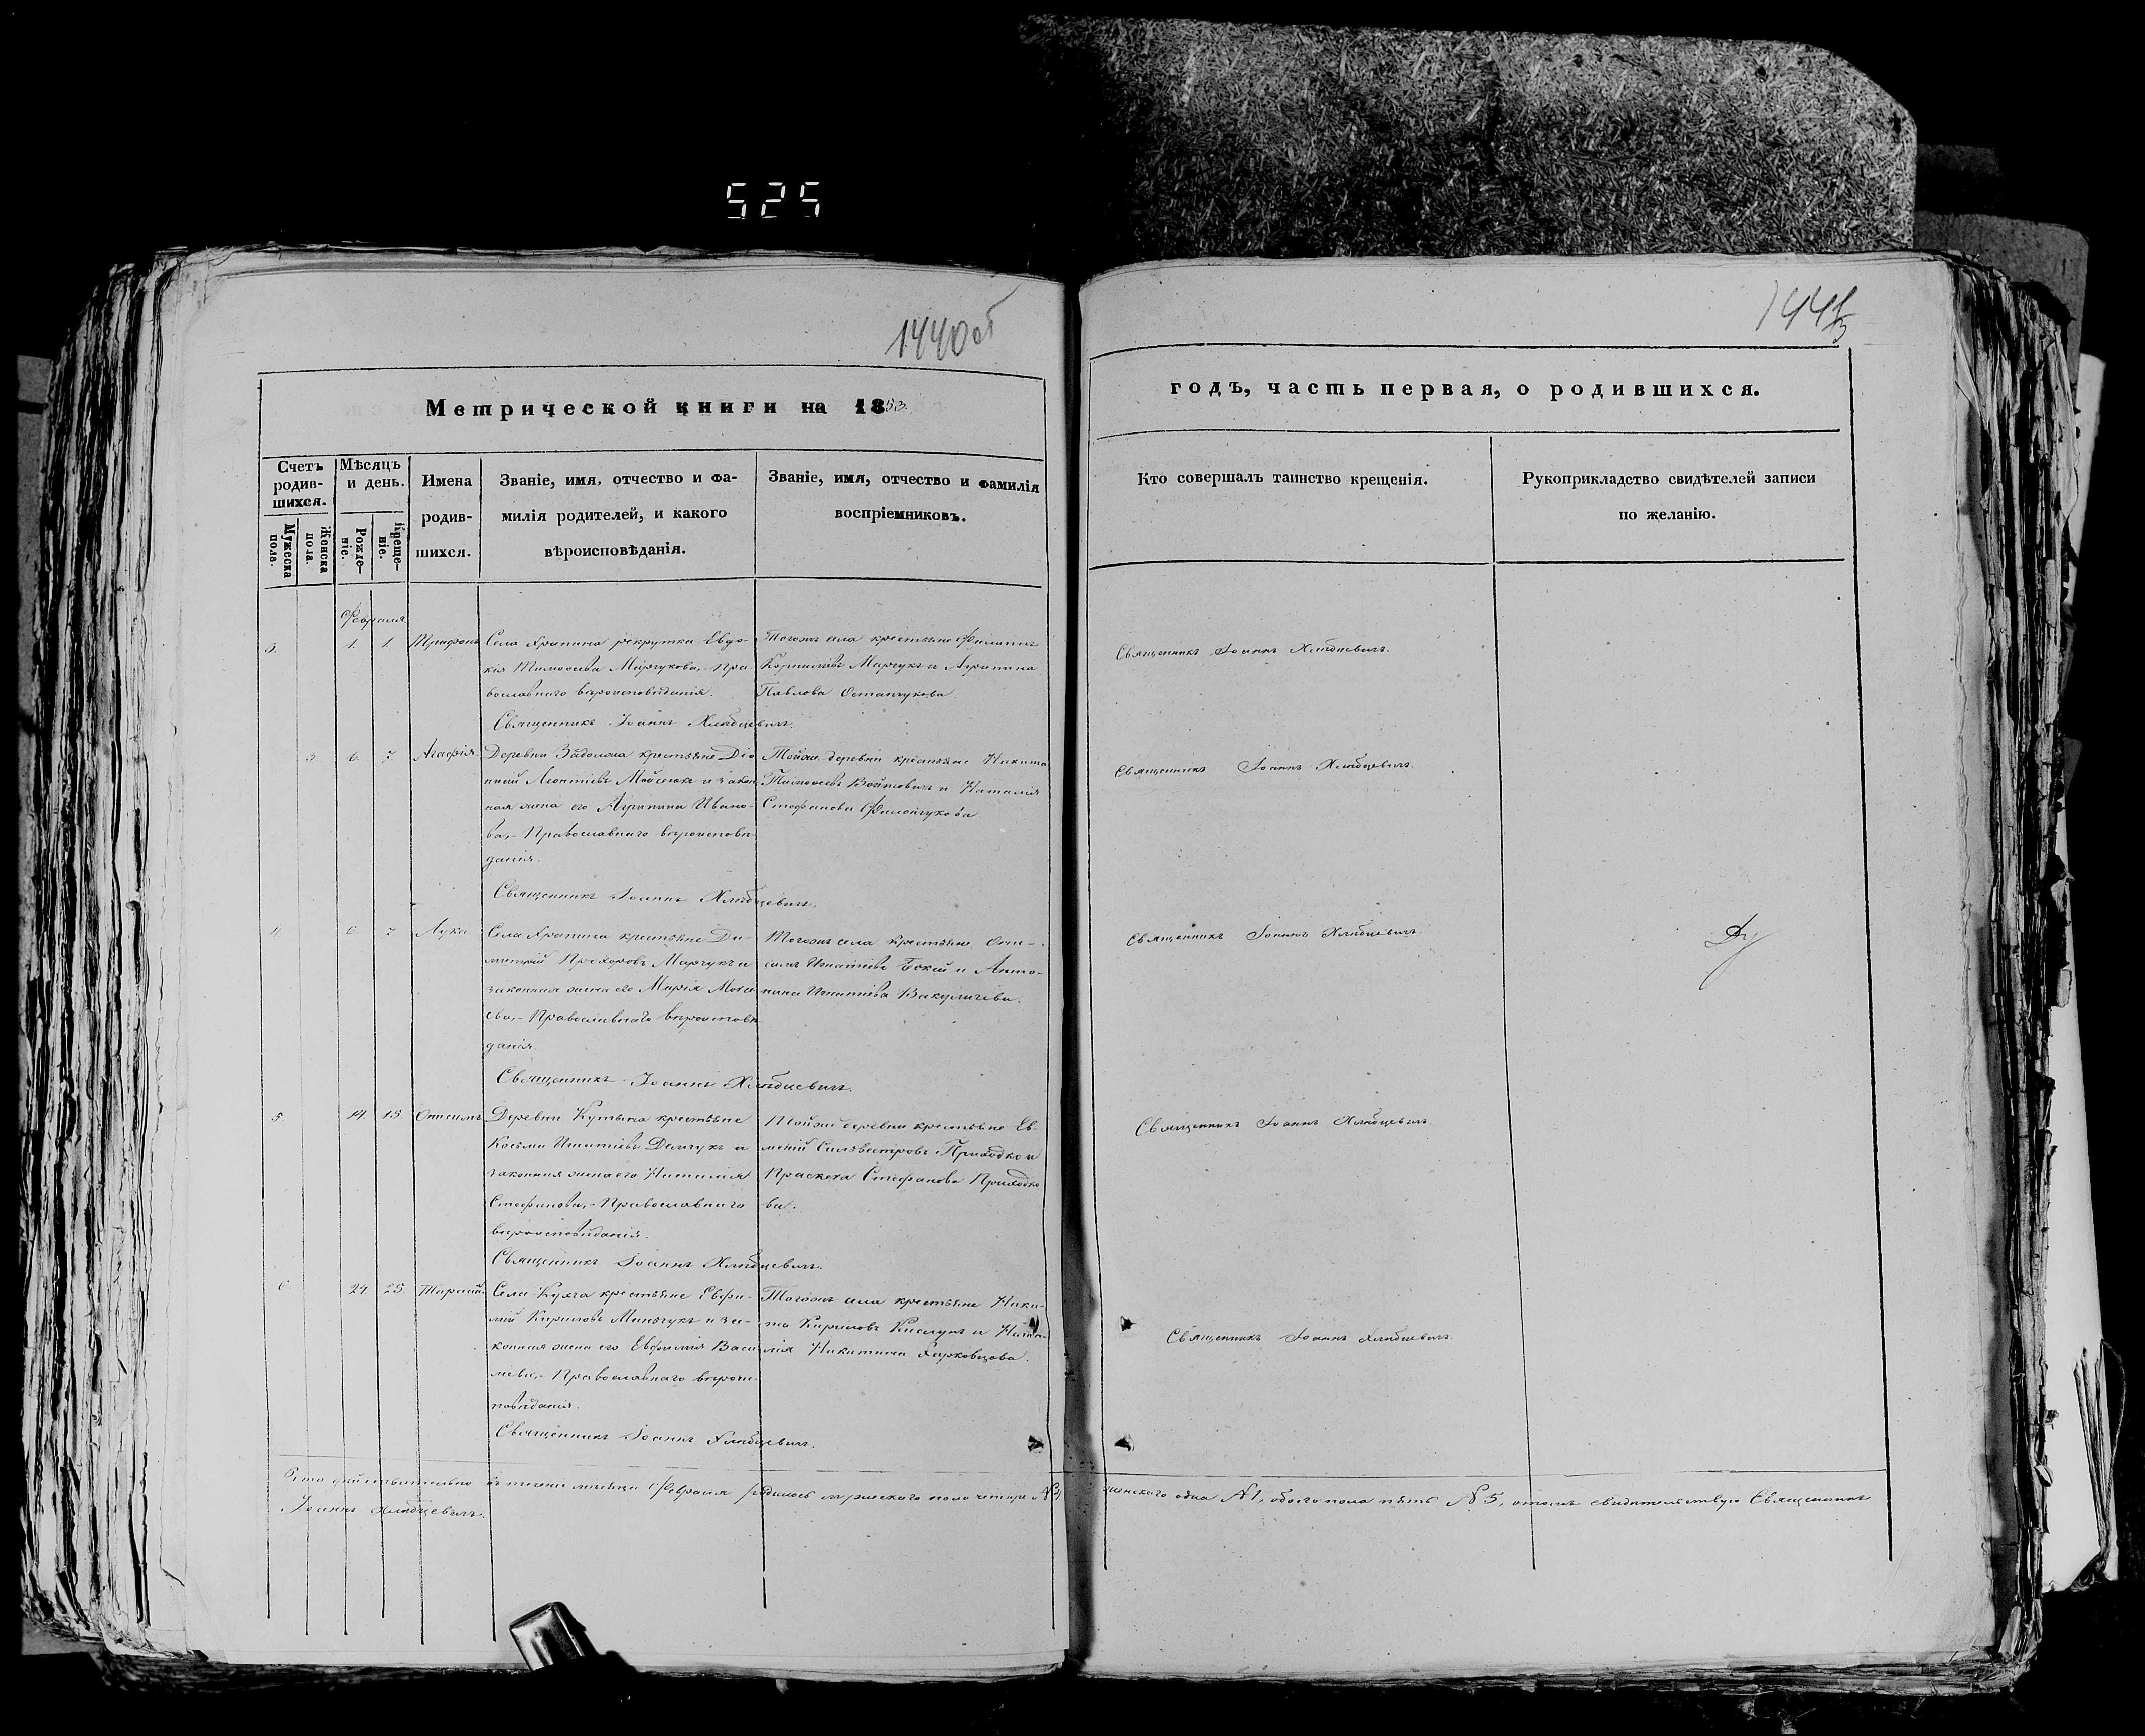 525
1440об
1441
Метрической книги на 1853
годъ, часть первая, о родившихся.
Счетъ родив-шихся.
Мужеска пола.
Женска пола.
Мѣсяцъ и день.
Рожде-ніе.
Креще-ніе.
Имена
родив-
шихся.
Званіе, имя, отчество и фа-
милія родителей, и какого
вѣроисповѣданія.
Званіе, имя, отчество и фамилія
воспріемниковъ.
Кто совершалъ таинство крещенія.
Рукоприкладство свидѣтелей записи
по желанію.
Февраля
3. 1. 1. Трифонъ
Села Храпина рекрутка Евдо-
кія Тимоѳеева Марчукова,- Пра
вославнаго вѣроисповѣданія.
Священникъ Іоаннъ Хлѣбцевичъ.
Тогожъ села крестьяне Филиппъ
Корниліевъ Марчукъ и Агрипина
Павлова Остапчукова
Священникъ Іоаннъ Хлѣбцевичъ.
3. 6. 7. Агафія
Деревни Задолжа крестьяне Діо
нисій Леонтіевъ Мойсеюкъ и закон
ная жена его Агрипина Ивано-
ва,- Православнаго вѣроисповѣ-
данія.
Священникъ Іоаннъ Хлѣбцевичъ.
Тойже деревни крестьяне Никита
Тимоѳеевъ Войтовичъ и Наталія
Стефанова
Священникъ Іоаннъ Хлѣбцевичъ.
4. 6 7 Лука
Села Храпина крестьяне Ди-
митрій Прохоровъ Марчукъ и
законная жена его Марія Моисе
ева,- Православнаго вѣроисповѣ
данія.
Священникъ Іоаннъ Хлѣбцевичъ.
Тогожъ села крестьяне Они-
симъ Игнатіевъ Бокій и Анто-
нина Игнатіева Вакуличева.
Священникъ Іоаннъ Хлѣбцевичъ
5. 14 15 Онисимъ
Деревни Кутына крестьяне
Косьма Игнатіевъ Демчукъ и
законная жена его Наталія
Стефанова,- Православнаго
вѣроисповѣданія.
Священникъ Іоаннъ Хлѣбцевичъ.
Тойже деревни крестьяне Ев-
меній Сильвестровъ Приходко и
Праскева Стефанова Приходко
ва.
Священникъ Іоаннъ Хлѣбцевичъ
6. 24 25 Тарасій
Села Кухча крестьяне Евфи-
мій Кириловъ и за-
конная жена его Евфимія Васи
лева,- Православнаго вѣроис-
повѣданія.
Священникъ Іоаннъ Хлѣбцевичъ.
Тогожъ села крестьяне Ники-
та Кириловъ и Ната-
лія Никитина Харковцова.
Священникъ Іоаннъ Хлѣбцевичъ
Что дѣйствительно въ теченіи мѣсяца Февраля родилось мужескаго пола четыре №4 женскаго одна №1, обоего пола пять №5, о томъ свидѣтельствую Священникъ
Іоаннъ Хлѣбцевичъ.